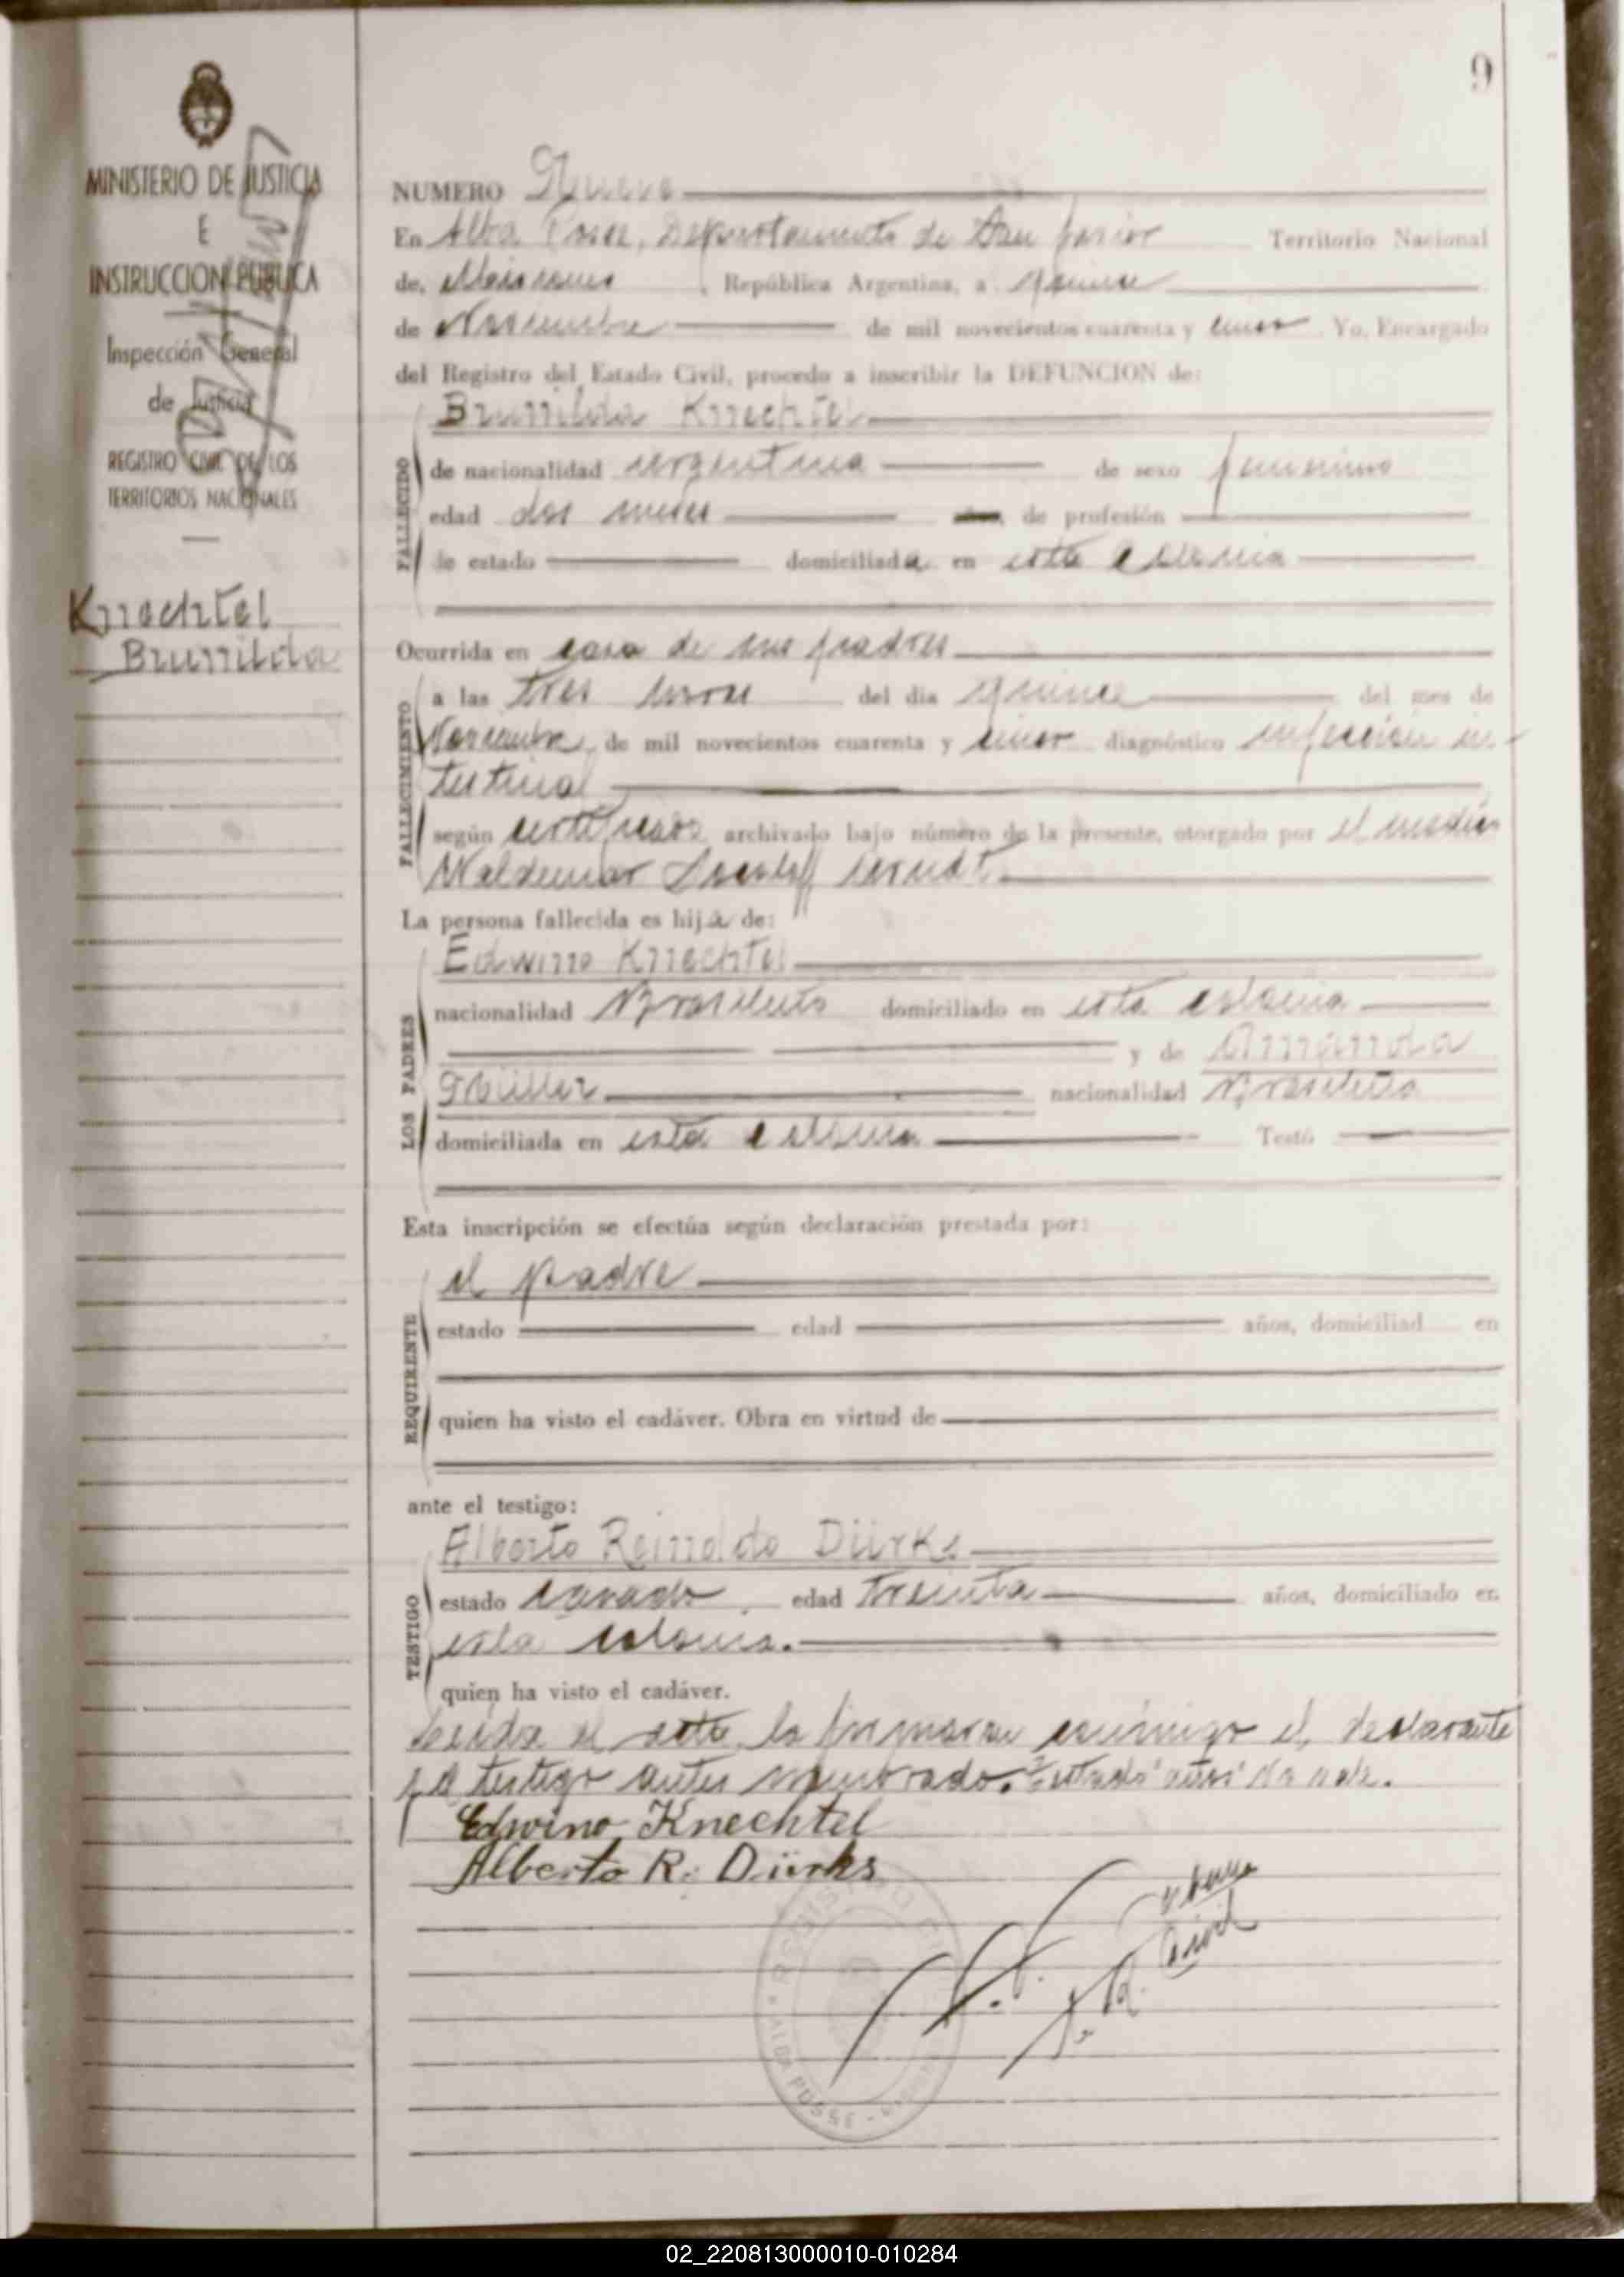 9
MINISTERIO DE JUSTICIA
E
INSTRUCCION PUBLICA
Inspección General
de Justicia
REGISTRO CIVIL DE LOS
TERRITORIOS NACIONALES
Knechtel
Brunilda
NUMERO Nueve
En Alba Posse, Departamento de San Javier Territorio Nacional
de, Misiones, República Argentina, a quince
de Noviembre de mil novecientos cuarenta y cinco Yo, Encargado
del Registro del Estado Civil, procedo a inscribir la DEFUNCION de:
Brunilda Knechtel
FALLECIDO
de nacionalidad argentina de sexo femenino
edad dos meses años, de profesión
de estado domiciliada en esta colonia
Ocurrida en casa de sus padres
FALLECIMIENTO
a las tres horas del dia quince del mes de
Noviembre, de mil novecientos cuarenta y cinco diagnóstico infección in-
testinal
según certificado archivado bajo número de la presente, otorgado por el médico
Waldemar
La persona fallecida es hija de:
LOS PADRES
Edwino Knechtel
nacionalidad Brasileño domiciliado en esta colonia
y de Amanda
Müller nacionalidad Brasileña
domiciliada en esta colonia Testó
Esta inscripción se efectúa según declaración prestada por:
REQUIRENTE
el padre
estado edad años, domiciliad en
quien ha visto el cadáver. Obra en virtud de
ante el testigo:
TESTIGO
Alberto Reinoldo Dürks
estado casado, edad treinta años, domiciliado en
esta colonia.
quien ha visto el cadáver.
Leída el acta la firmaron conmigo el declarante
y el testigo antes nombrado. Testado "años" no vale.
Edwino Knechtel
Alberto R. Dürks
REGISTRO
ALBA POSSE
Civil
02_220813000010-010284